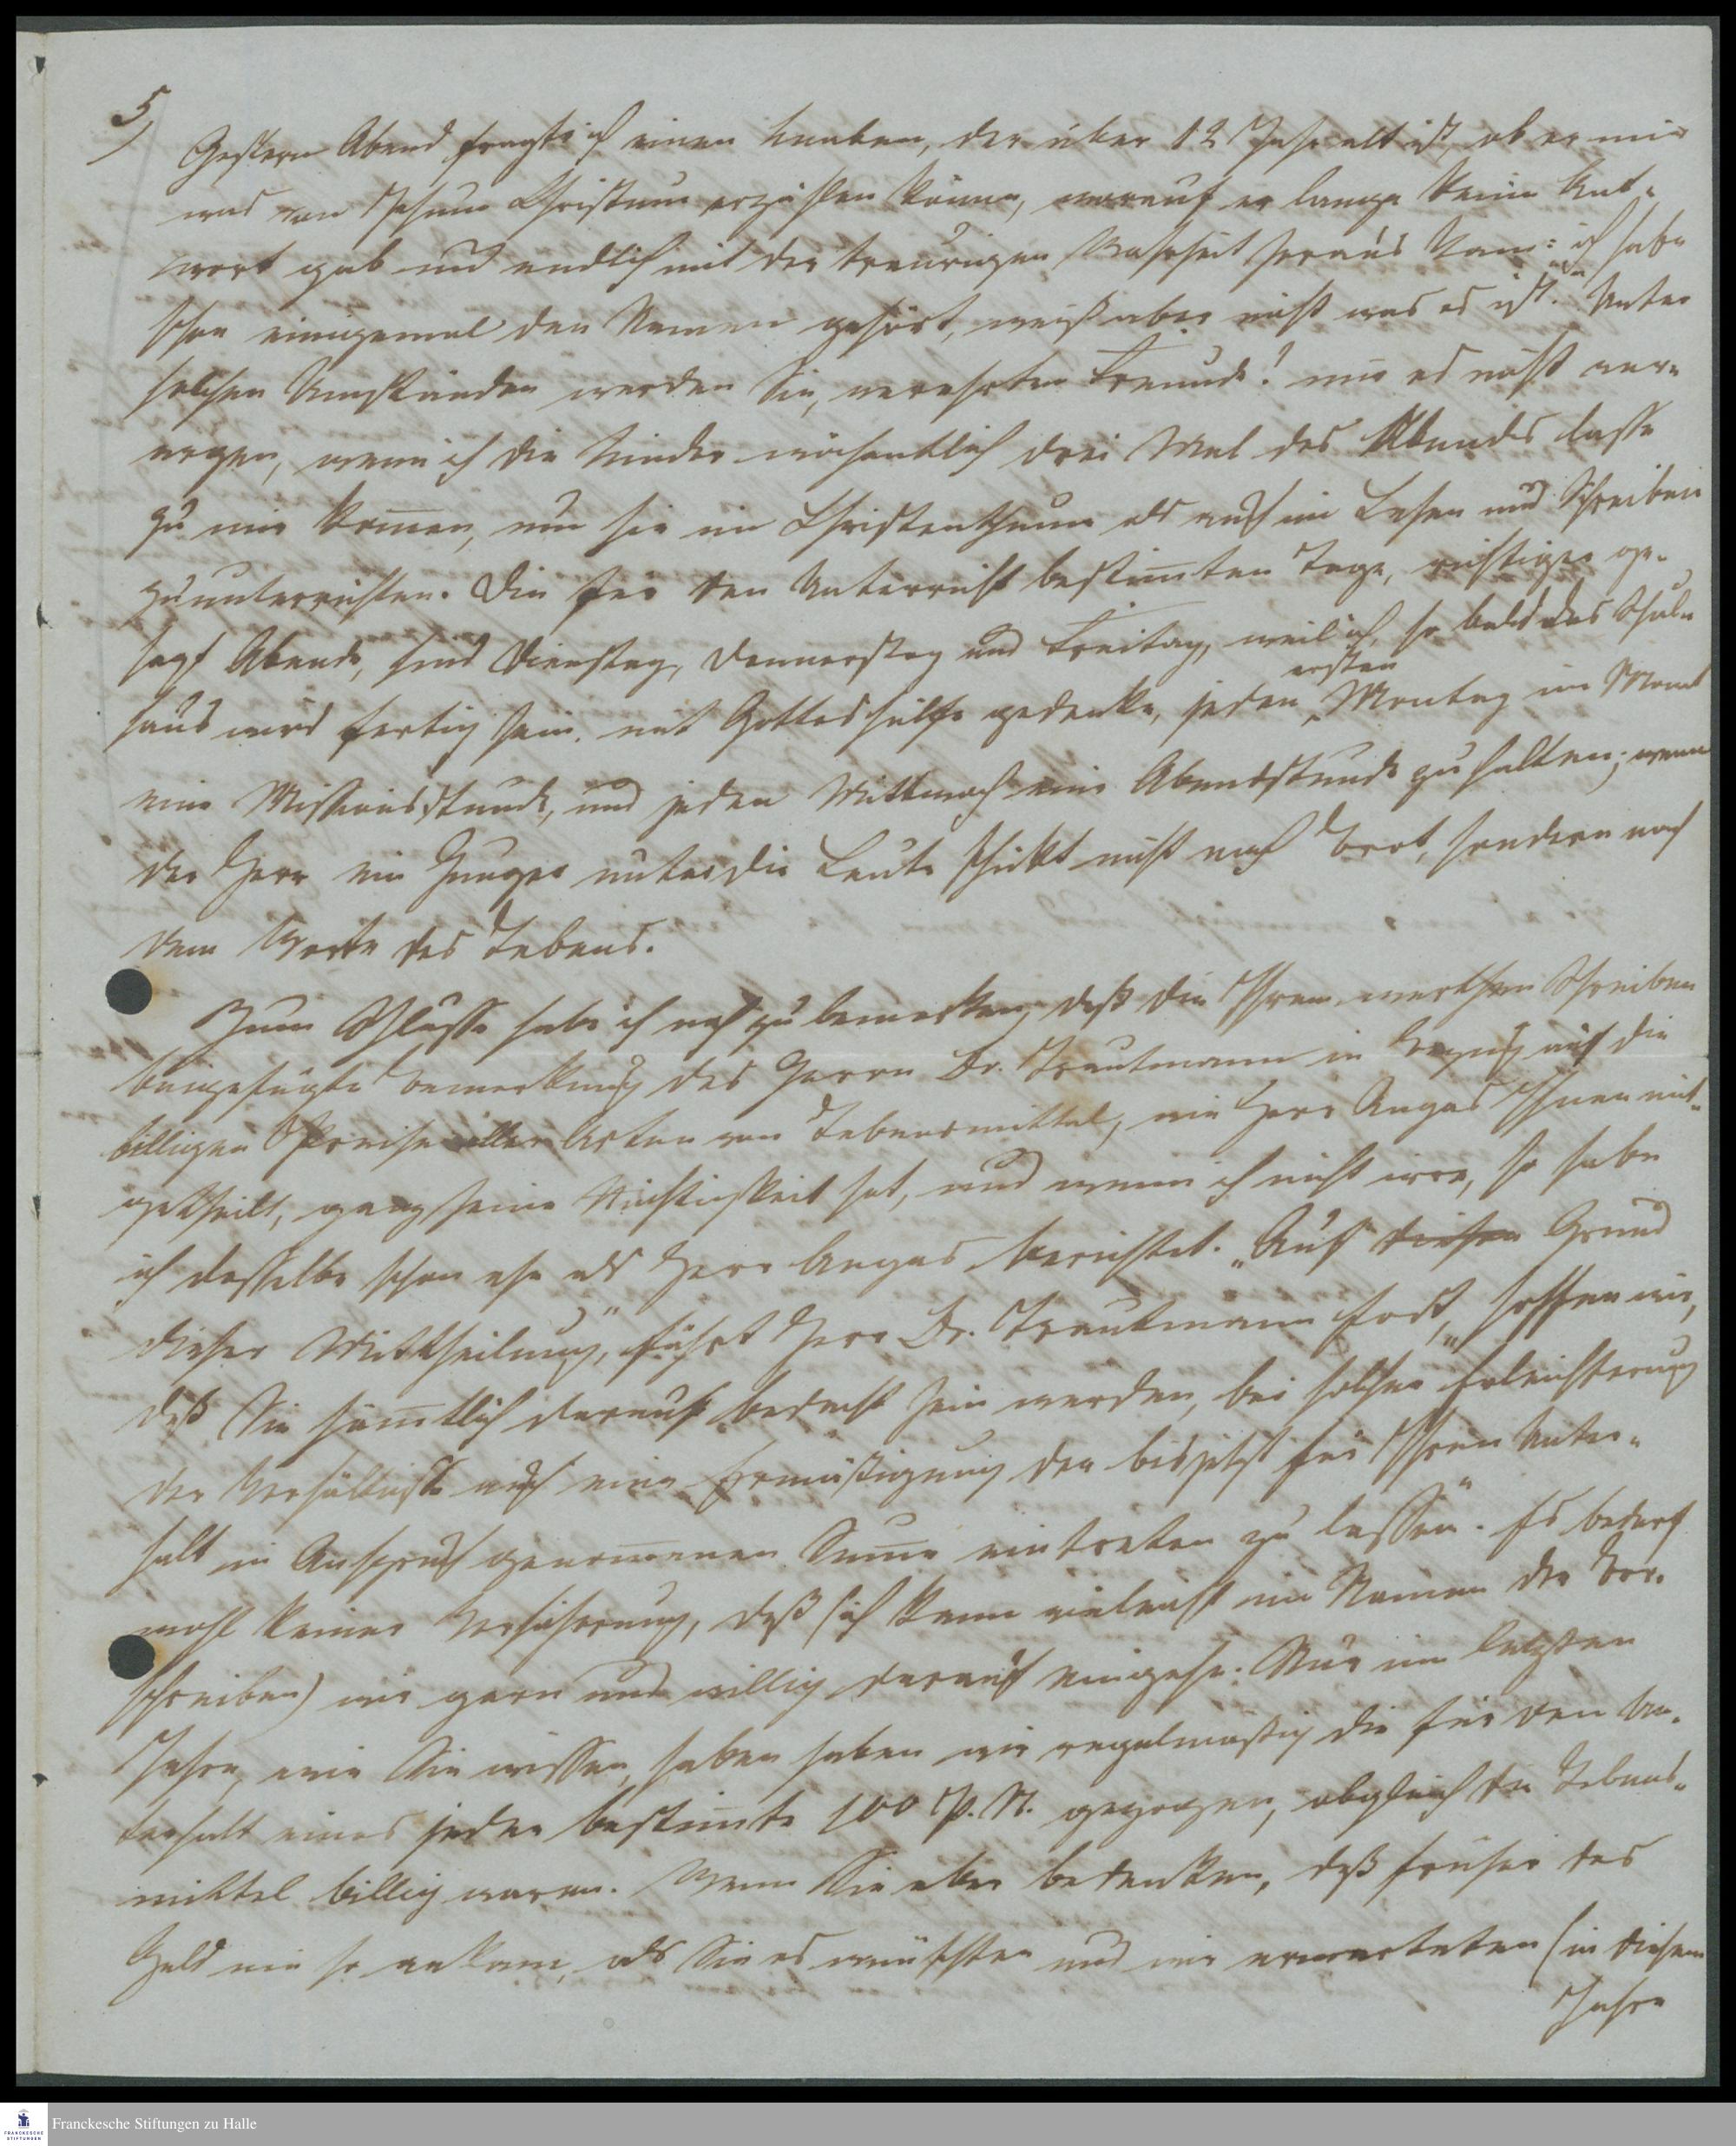 5)
Gestern Abend fragte ich einen Knaben, der über 12 Jahr alt ist, ob er mir
was von Jesum Christum erzählen könne, worauf er lange keine Ant-
wort gab und endlich mit der traurigen Wahrheit heraus kam: „ich habe
schon einigemal den Namen gehört, weiß aber nicht was es ist." Unter
solchen Umständen werden Sie, verehrten Freunde! mir es nicht ver-
argen, wenn ich die Kinder wöchentlich drei Mal des Abends lasse
zu mir kommen, um sie im Christenthum als auch im Lesen und Schreiben
zu unterrichten. Die für den Unterricht bestimmten Tage, richtiger ge-
sagt Abende, sind Dienstag, Donnerstag und Freitag, weil ich, so bald das Schul-
haus wird fertig sein, mit Gotteshülfe gedenke, jeden ersten Montag im Monat
eine Missionsstunde, und jeden Mittwoch eine Abendstunde zu halten; wenn
der Herr ein Hunger unter die Leute schickt nicht nach Brot, sondern nach
dem Worte des Lebens.
Zum Schlusse habe ich noch zu bemerken, daß die Ihrem werthen Schreiben
beigefügte Bemerkung des Herrn Dr. Trautmann in Bezug auf die
billigen Preise aller Arten von Lebensmittel, wie Herr Angas Ihnen mit-
getheilt, ganz seine Richtigkeit hat, und wenn ich nicht irre, so habe
ich dasselbe schon ehe als Herr Angas berichtet. „Auf diesen Grund
dieser Mittheilung," führt Herr Dr. Trautmann fort, „hoffen wir,
daß Sie sämtlich darauf bedacht sein werden, bei solcher Erleichterung
der Verhältniße auch eine Ermäßigung der bis jetzt für Ihren Unter-
halt in Anspruch genommenen Summe eintreten zu lassen". Es bedarf
wohl keiner Versicherung, daß (ich kann vieleicht im Namen der Bor.
schreiben) wir gern und willig darauf eingehe. Nur im letzten
Jahre, wie Sie wissen, haben haben wir regelmäßig die für den Un-
terhalt eines jeden bestimmte 100 P. St. gezogen, obgleich die Lebens-
mittel billig waren. Wenn Sie aber bedenken, daß früher das
Geld nie so ankam, als Sie es wünschten und wir erwarteten (in diesem
Jahre
Franckesche Stiftungen zu Halle
FRANCKESCHE STIFTUNGEN